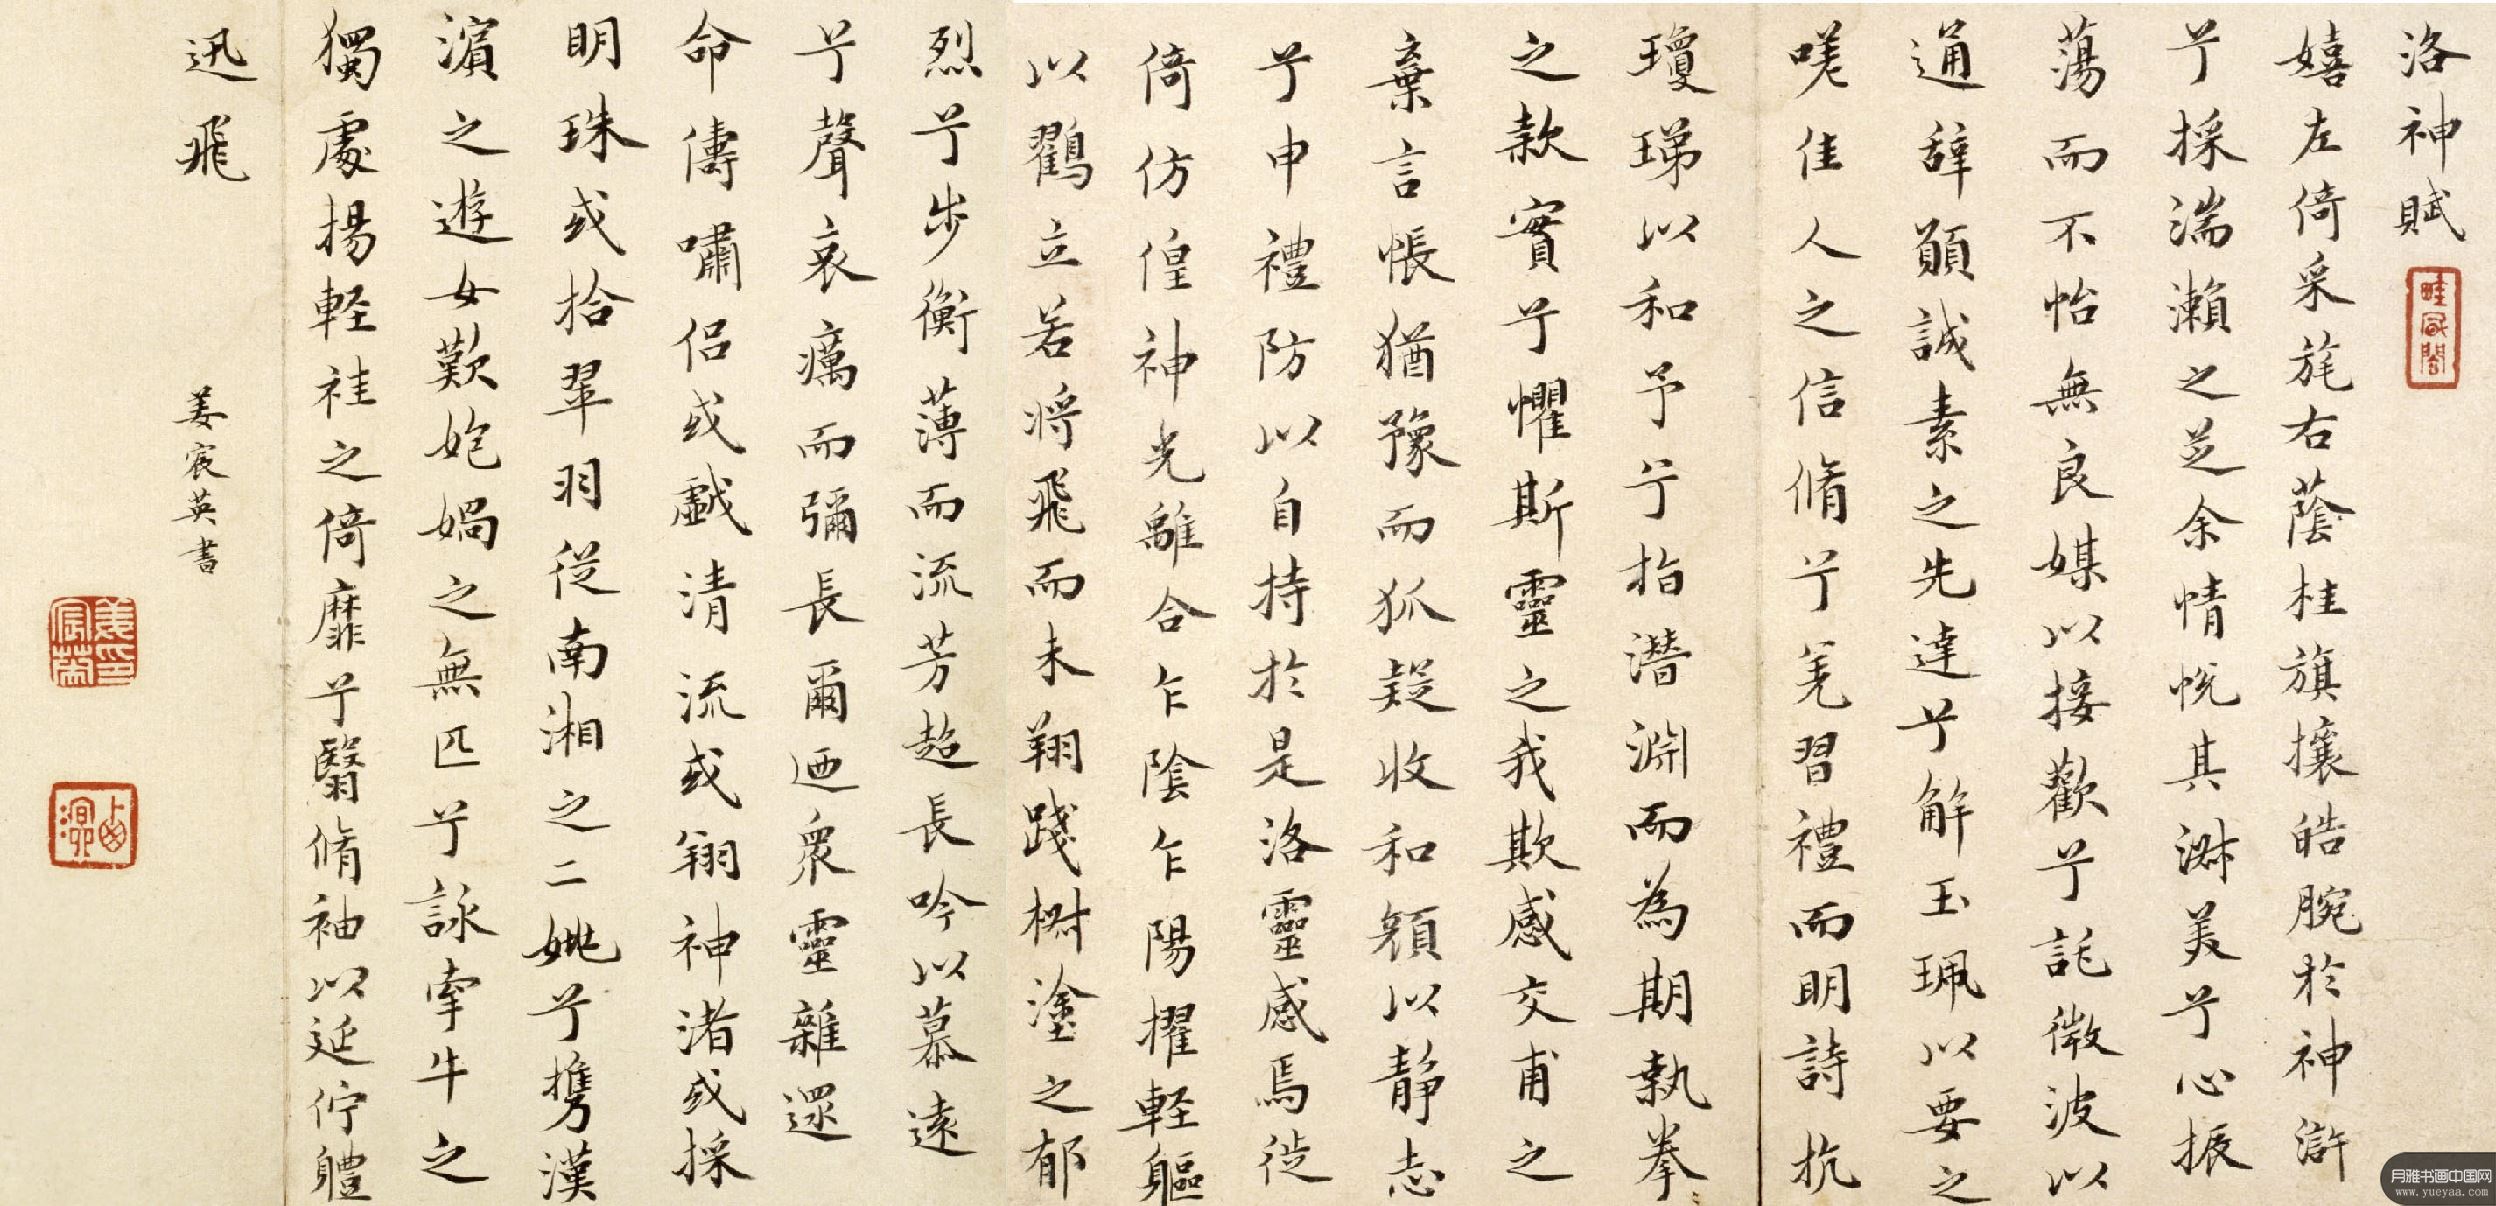 洛神賦
嬉左倚采旄右蔭桂旗攘皓腕於神滸
兮採湍瀨之芝余情悅其淑美兮心振
蕩而不怡無良媒以接歡兮託微波以
通辭願誠素之先達兮解玉珮以要之
嗟佳人之信脩兮羌習禮而明詩抗
瓊珶以和予兮指潛淵而為期執拳
之款實兮懼斯靈之我欺感交甫之
棄言悵猶豫而狐疑收和顏以靜志
兮申禮防以自持於是洛靈感焉徙
倚仿偟神光離合乍陰乍陽擢軽軀
以鸖立若將飛而未翔踐椒塗之郁
烈兮步衡薄而流芳超長吟以慕遠
兮聲哀癘而彌長爾迺衆靈雜遝
命儔嘯侶或戲清流或翔神渚或採
明珠或拾翠羽從南湘之二姚兮携漢
濵之遊女歎匏媧之無匹兮詠牽牛之
獨處揚軽袿之倚靡兮翳脩袖以延佇體
迅飛
姜宸英書
姜宸英印
月雅书画中国网
www.yueyaa.com